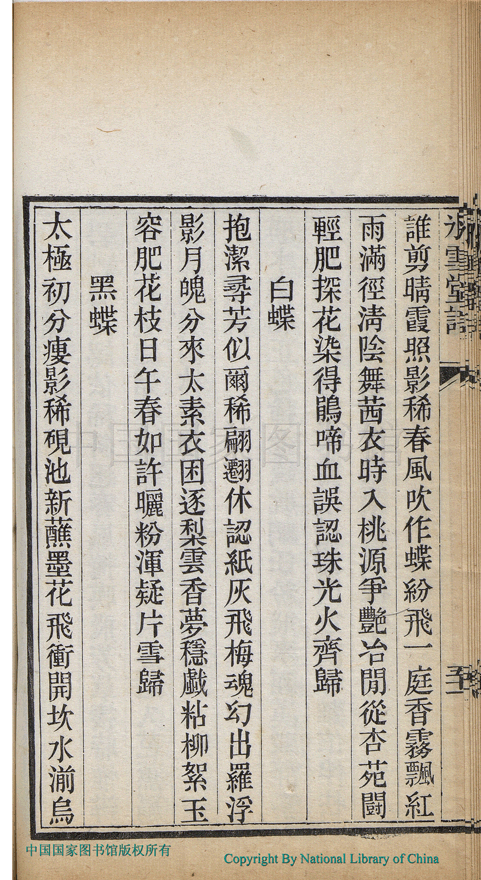 誰剪晴霞照影稀春風吹作蝶紛飛一庭香霧飄紅
雨滿徑淸陰舞茜衣時入桃源爭艷冶閒從杏苑鬪
輕肥探花染得鵑啼血誤認珠光火齊歸
白蝶
抱潔尋芳似爾稀翩翾休認紙灰飛梅魂幻出羅浮
影月魄分來太素衣困逐梨雲香夢穩戲粘柳絮玉
容肥花枝日午春如許曬粉渾疑片雪歸
黑蝶
太極初分瘦影稀硯池新蘸墨花飛衝開坎水湔烏
中国国家图书馆
中国国家图书馆版权所有
Copyright By National Library of China